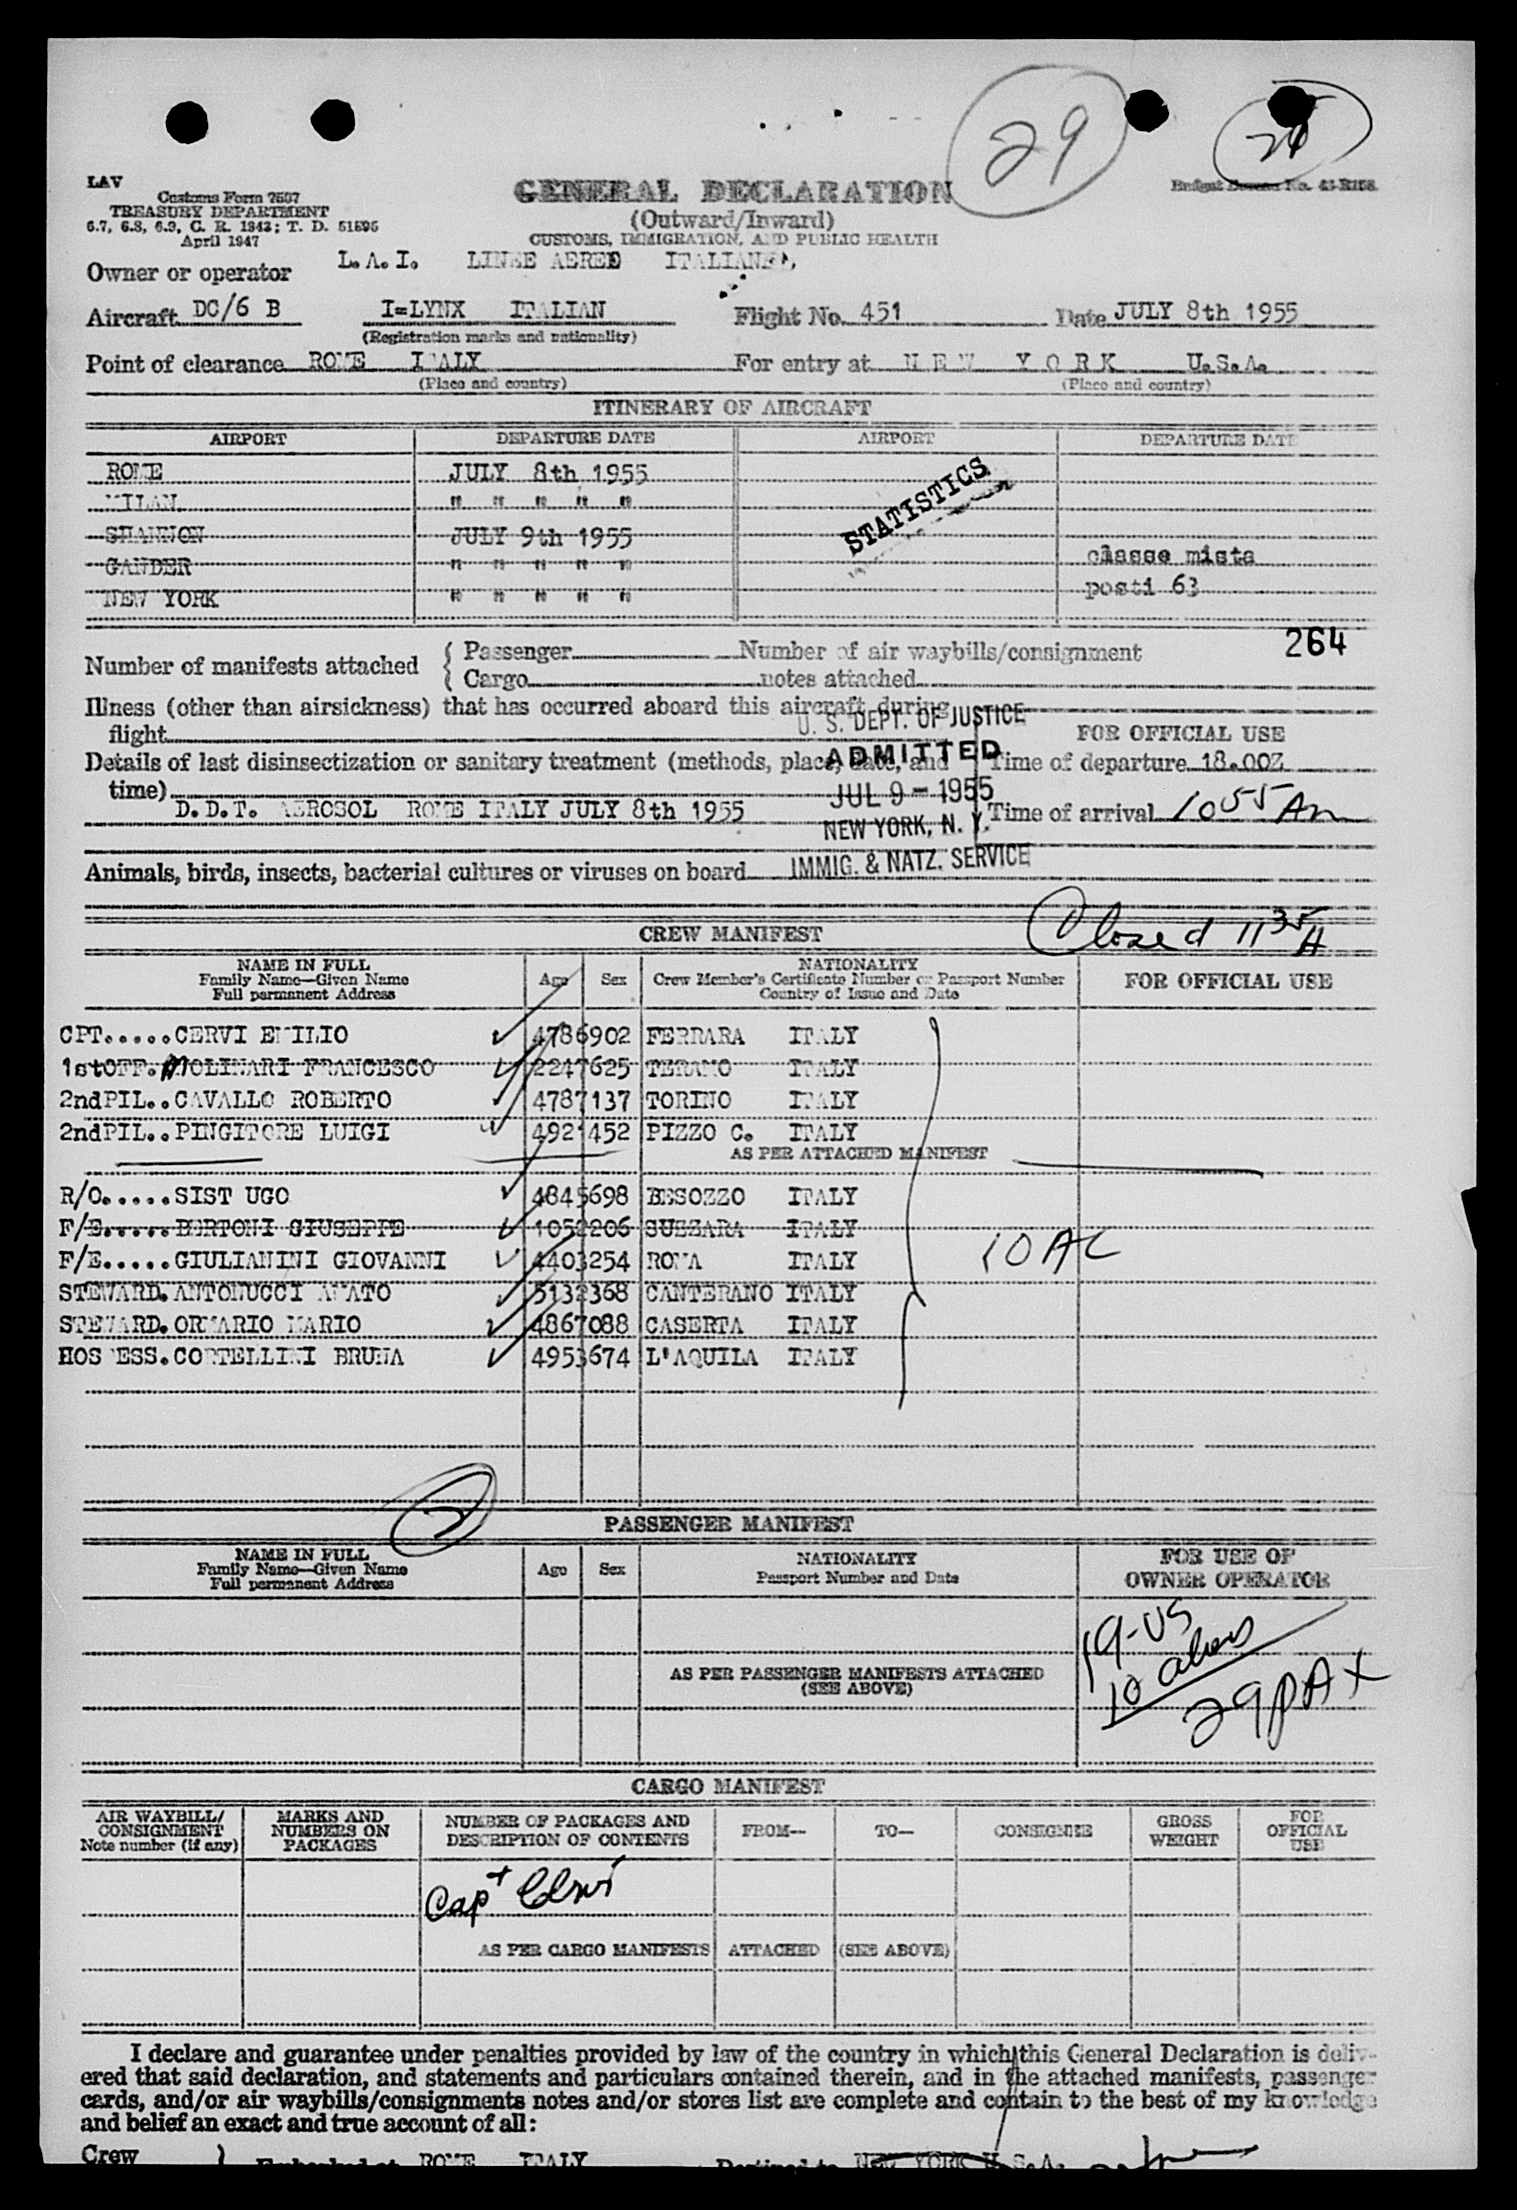 29
LAV
Customs Form 7507
TREASURY DEPARTMENT
6.7, 6.8, 6.9, C. R. 1943; T. D. 51896
April 1947
GENERAL DECLARATION
(Outward/Inward)
CUSTOMS, IMMIGRATION, AND PUBLIC HEALTH
Budget Bureau No.
Owner or operator L. A. I. LINEE AEREE ITALIANE
Aircraft DC/6 B I=LYNX ITALIAN Flight No. 451 Date JULY 8th 1955
(Registration marks and nationality)
Point of clearance ROME ITALY For entry at NEW YORK U.S.A.
(Place and country) (Place and country)
ITINERARY OF AIRCRAFT
AIRPORT DEPARTURE DATE AIRPORT DEPARTURE DATE
ROME JULY 8th 1955
MILAN " " " " "
STATISTICS
SHANNON JULY 9th 1955
GANDER " " " " " classe mista
NEW YORK " " " " " posti 63
264
Number of manifests attached { Passenger Number of air waybills/consignment
Cargo notes attached
Illness (other than airsickness) that has occurred aboard this aircraft during
flight
U. S. DEPT. OF JUSTICE
ADMITTED
JUL 9 - 1955
NEW YORK, N. Y.
IMMIG. & NATZ. SERVICE
FOR OFFICIAL USE
Details of last disinsectization or sanitary treatment (methods, place, date, and Time of departure 18.00Z
time)
D.D.T. AEROSOL ROME ITALY JULY 8th 1955 Time of arrival 1055 Am
Animals, birds, insects, bacterial cultures or viruses on board
Closed 11 35 A
CREW MANIFEST
NAME IN FULL
Family Name—Given Name
Full permanent Address
Age Sex
NATIONALITY
Crew Member's Certificate Number or Passport Number
Country of Issue and Date
FOR OFFICIAL USE
CPT.....CERVI EMILIO 4786902 FERRARA ITALY
1stOFF.MOLINARI FRANCESCO 2247625 TERAMO ITALY
2ndPIL..CAVALLO ROBERTO 4787137 TORINO ITALY
2ndPIL..PINGITORE LUIGI 4921452 PIZZO C. ITALY
AS PER ATTACHED MANIFEST
R/O.....SIST UGO 4845698 BESOZZO ITALY
F/E.....BERTONI GIUSEPPE 1052206 SUZZARA ITALY
F/E.....GIULIANINI GIOVANNI 4403254 ROMA ITALY
10 AC
STEWARD.ANTONUCCI AMATO 5132368 CANTERANO ITALY
STEWARD.ORMARIO MARIO 4867088 CASERTA ITALY
HOSTESS.CORTELLINI BRUNA 4953674 L'AQUILA ITALY
2
PASSENGER MANIFEST
NAME IN FULL
Family Name—Given Name
Full permanent Address
Age Sex
NATIONALITY
Passport Number and Date
FOR USE OF
OWNER OPERATOR
19-US
10 aliens
29 PAX
AS PER PASSENGER MANIFESTS ATTACHED
(SEE ABOVE)
CARGO MANIFEST
AIR WAYBILL/
CONSIGNMENT
Note number (if any)
MARKS AND
NUMBERS ON
PACKAGES
NUMBER OF PACKAGES AND
DESCRIPTION OF CONTENTS
FROM—
TO—
CONSIGNEE
GROSS
WEIGHT
FOR
OFFICIAL
USE
Capt Cervi
AS PER CARGO MANIFESTS ATTACHED (SEE ABOVE)
I declare and guarantee under penalties provided by law of the country in which this General Declaration is deliv-
ered that said declaration, and statements and particulars contained therein, and in the attached manifests, passenger
cards, and/or air waybills/consignments notes and/or stores list are complete and contain to the best of my knowledge
and belief an exact and true account of all:
Crew } Embarked at ROME ITALY Destined to NEW YORK U.S.A.